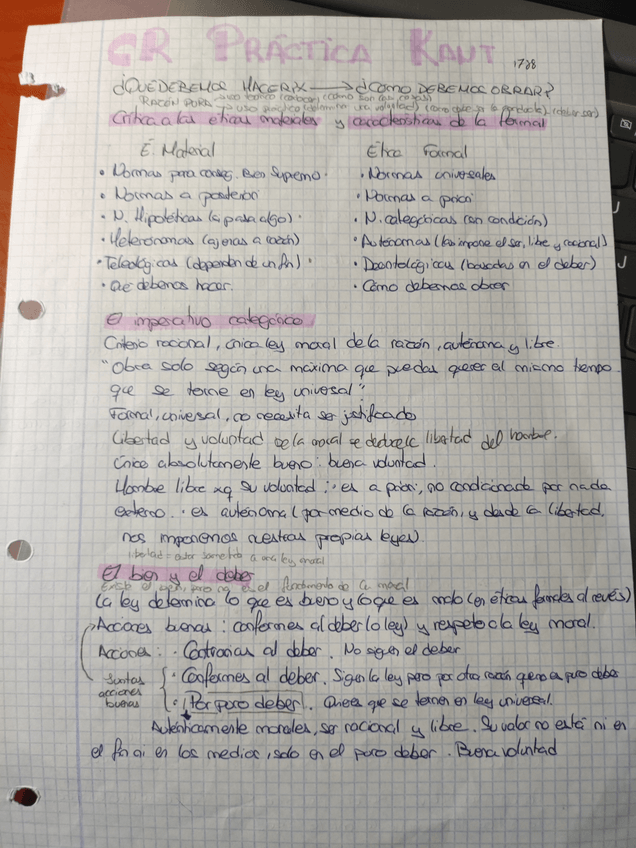 CR PRÁCTICA KANT 1788
¿QUÉ DEBEMOS HACER? X → ¿CÓMO DEBEMOS OBRAR?
RAZÓN PURA → uso teórico (conocer) (cómo son las cosas)
→ uso práctico (determina una voluntad) (deber ser)
Crítica a las éticas materiales y características de la formal
E. Material
Ética Formal
• Normas para conseg. Bien Supremo.
• Normas universales
• Normas a posteriori
• Normas a priori
• N. Hipotéticas (si pasa algo)
• N. categóricas (sin condición)
• Heterónomas (ajenas a razón)
• Autónomas (las impone el ser, libre y racional)
• Teleológicas (dependen de un fin)
• Deontológicas (basadas en el deber)
• Qué debemos hacer
• Cómo debemos obrar
El imperativo categórico
Criterio racional, única ley moral de la razón, autónoma y libre.
"Obra solo según una máxima que puedas querer al mismo tiempo
que se torne en ley universal".
Formal, universal, no necesita ser justificado
Libertad y voluntad de la moral se deduce la libertad del hombre.
Único absolutamente bueno: buena voluntad.
Hombre libre xq su voluntad: · es a priori, no condicionada por nada
externo. · es autónoma (por medio de la razón, y desde la libertad,
nos imponemos nuestras propias leyes.
libertad = estar sometida a una ley moral
El bien y el deber
Existe el bien, pero no es el fundamento de la moral
La ley determina lo que es bueno y lo que es malo (en éticas formales al revés)
Acciones buenas: conformes al deber (o ley) y respeto a la ley moral.
Acciones: · Contrarias al deber. No siguen el deber
· Conformes al deber. Siguen la ley pero por otra razón que no es puro deber
Juntas
acciones
buenas
· Por puro deber. Quieres que se tornen en ley universal.
Auténticamente morales, ser racional y libre. Su valor no está ni en
el fin ni en los medios, solo en el puro deber. Buena voluntad